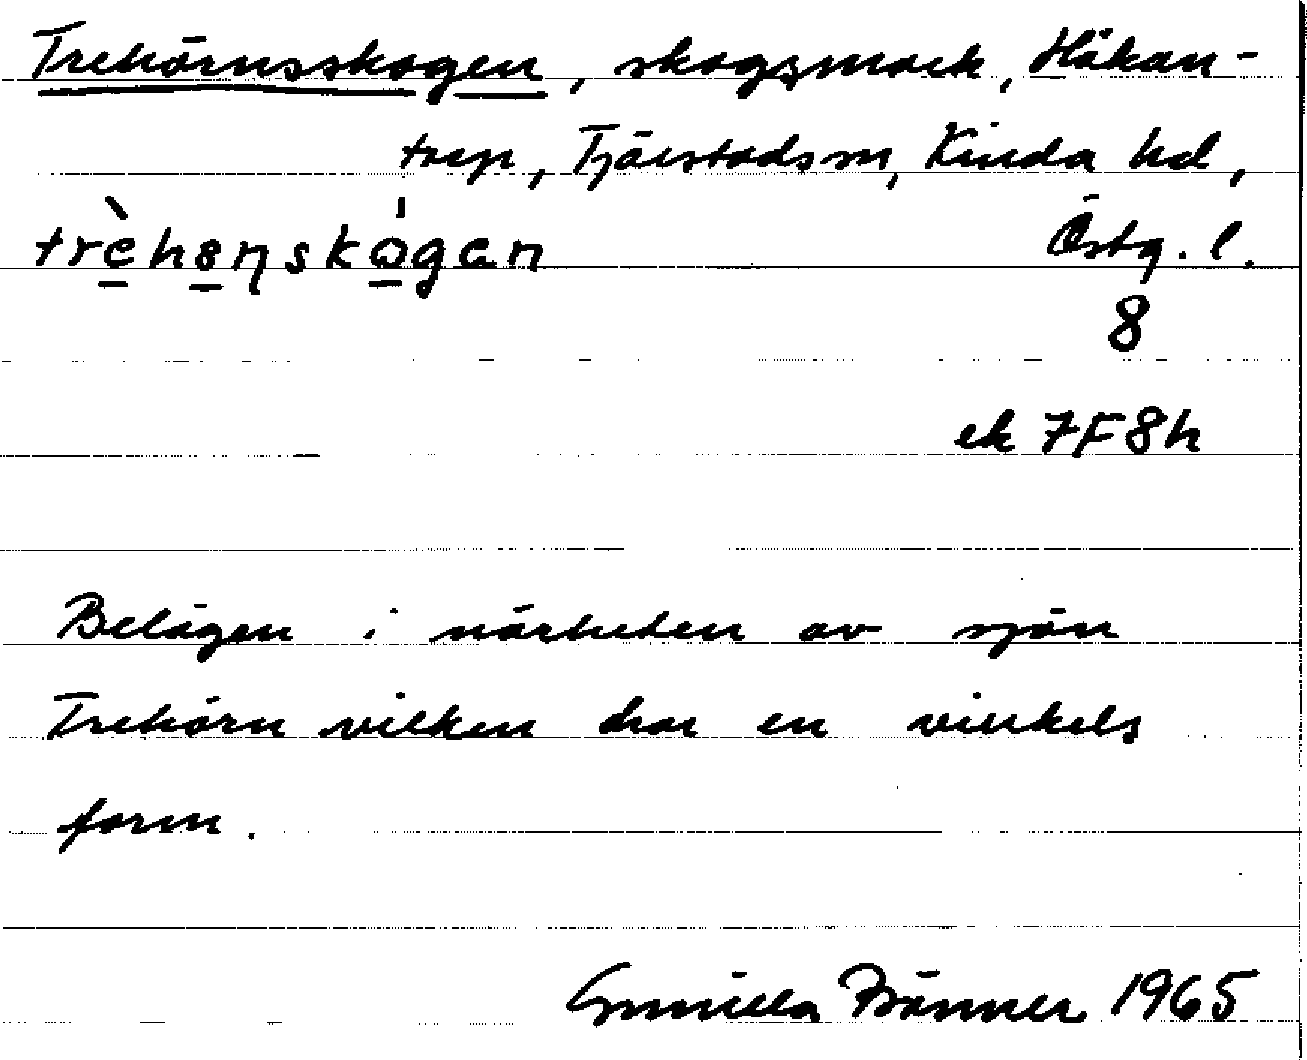 Trehörnsskogen, skogsmark, Håkan-
torp, Tjärstads sn, Kinda hd,
trèhønskógen Östg. l.
8
ek 7F8h
Belägen i närheten av sjön
Trehörn vilken har en vinkels
form.
Gunilla Bränner 1965